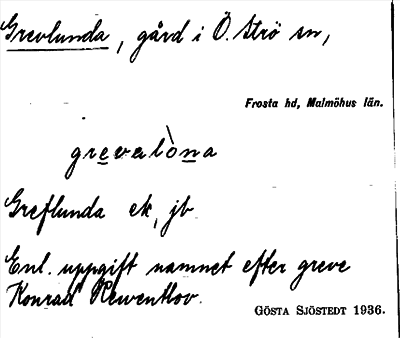 Grevlunda, gård i Ö. Strö sn,
Frosta hd, Malmöhus län.
grevalòna
Greflunda ek, jb
Enl. uppgift namnet efter greve
Konrad Rewentlov.
GÖSTA SJÖSTEDT 1936.